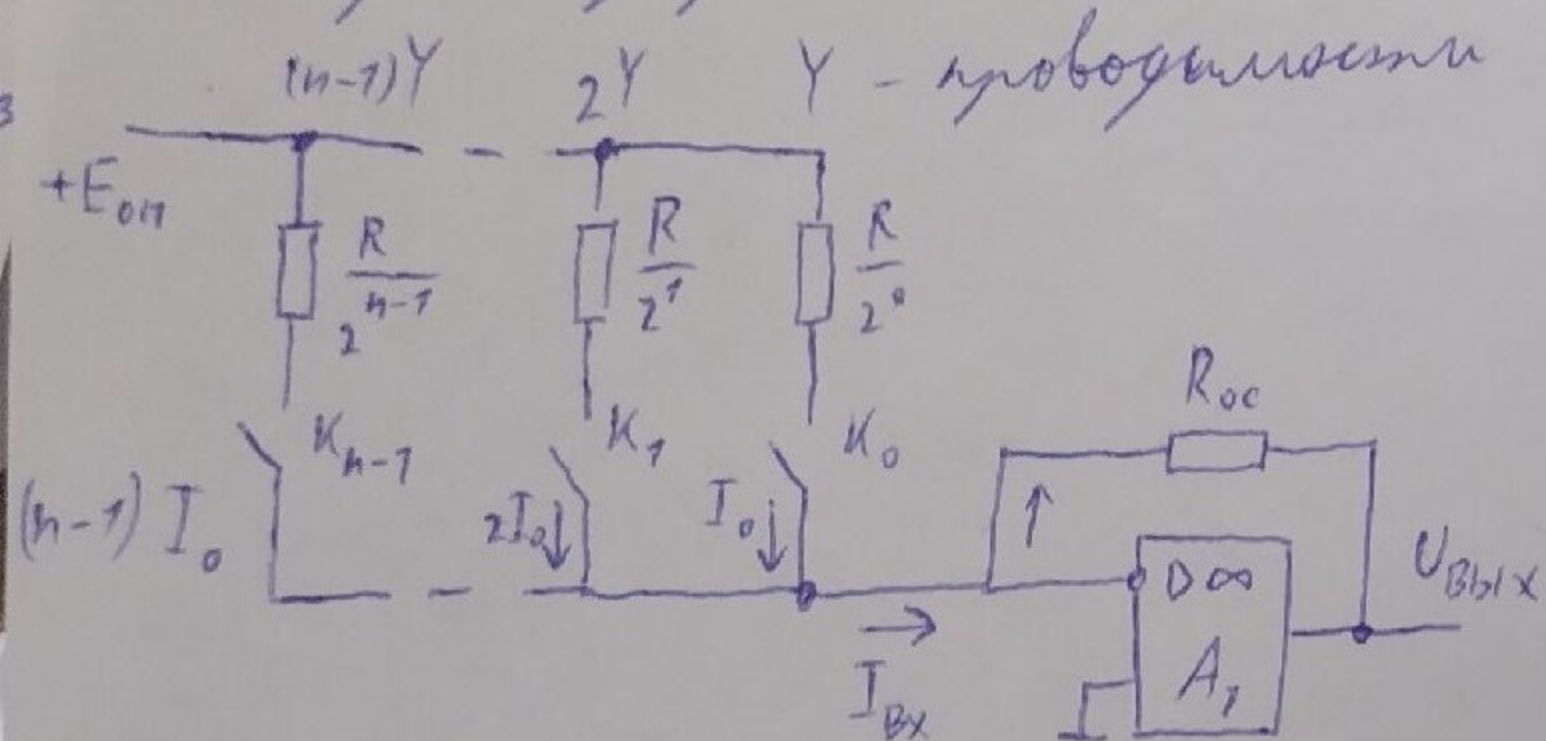 (n-1)Y 2Y Y - проводимости
+Eоп
R/2^(n-1) R/2^1 R/2^0
Rос
Kn-1 K1 K0
(n-1) I0 2I0 I0
▷∞ Uвых
A1
Iвх